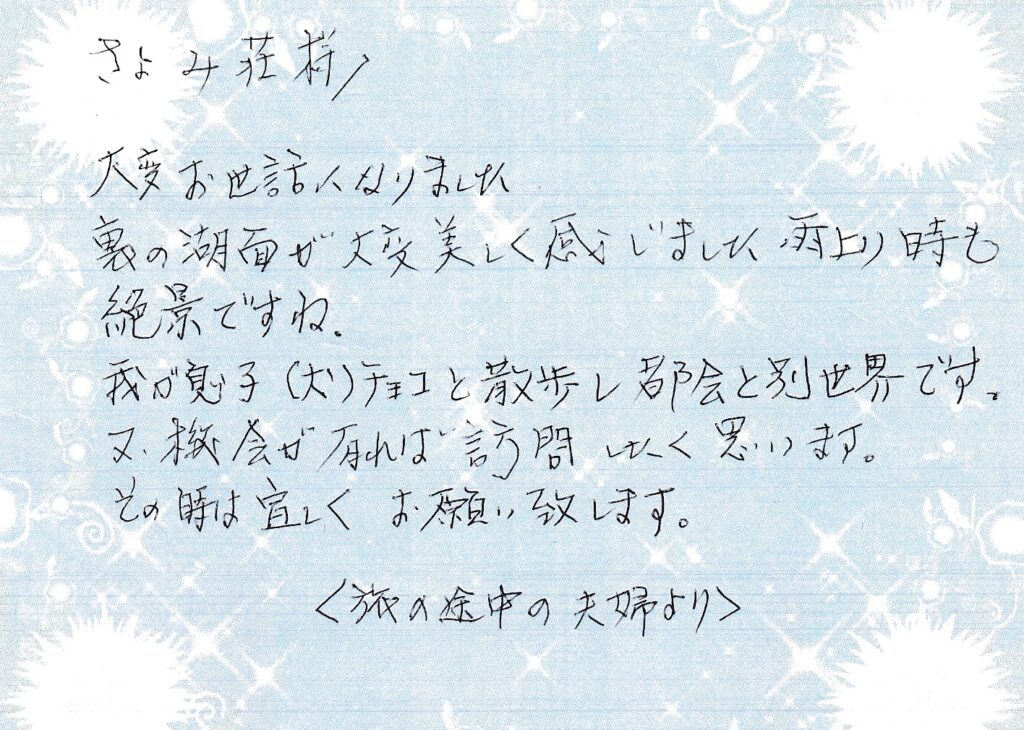 きよみ荘様
大変お世話になりました
裏の湖面が大変美しく感じました 雨上り時も
絶景ですね。
我が息子(犬)チョコと散歩し都会と別世界です。
又、機会が有れば訪問したく思います。
その時は宜しくお願い致します。
<旅の途中の夫婦より>